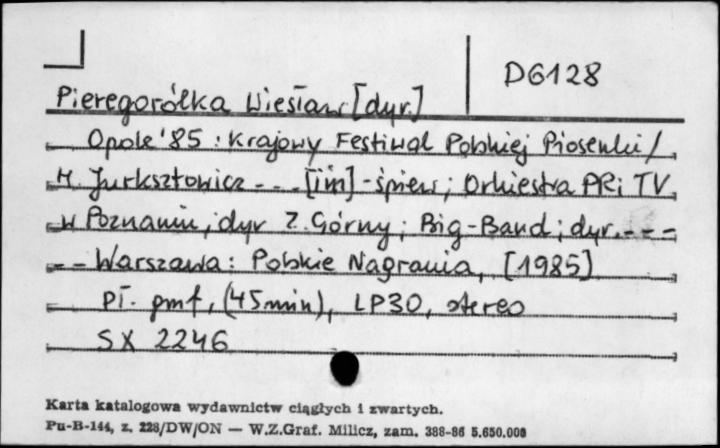 D6128
Pieregorólka Wiesław [dyr.]
Opole '85 : Krajowy Festiwal Polskiej Piosenki /
H. Jurksztowicz - - - [i in] - śpiew ; Orkiestra PRi TV
w Poznaniu, dyr Z. Górny ; Big-Band ; dyr. - - -
- - Warszawa : Polskie Nagrania, [1985]
pł. pmf, (45 min), LP30, stereo
SX 2246
Karta katalogowa wydawnictw ciągłych i zwartych.
Pu-B-144, z. 228/DW/ON — W.Z.Graf. Milicz, zam. 388-86 5.650.000